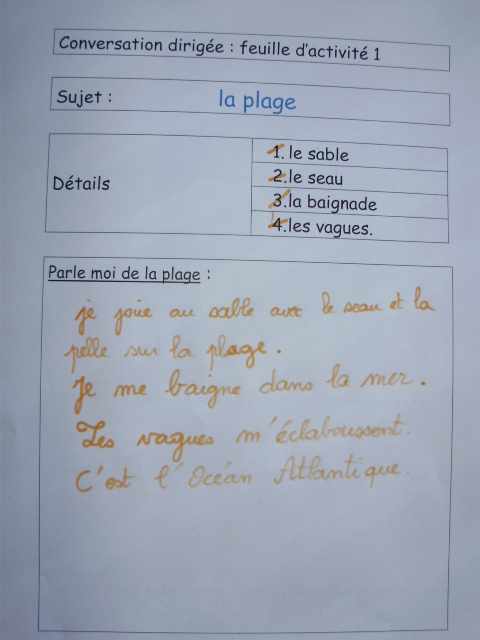 Conversation dirigée : feuille d'activité 1
Sujet : la plage
Détails
1. le sable
2.le seau
3.la baignade
4.les vagues.
Parle moi de la plage :
je joue au sable avec le seau et la
pelle sur la plage.
Je me baigne dans la mer.
Les vagues m'éclaboussent.
C'est l'Océan Atlantique.